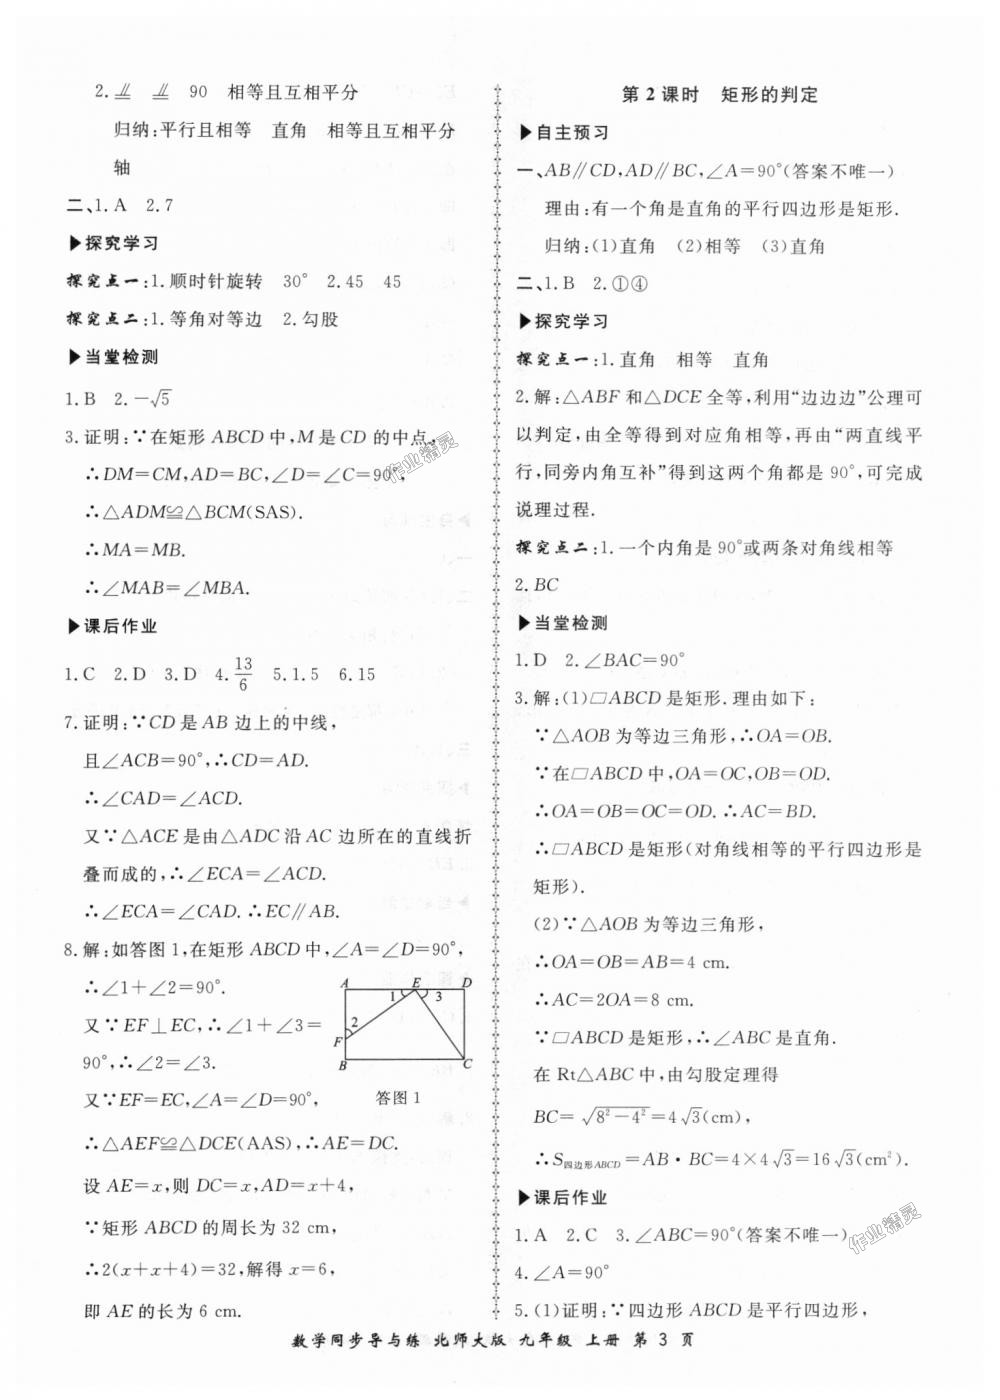 2. ⫽ ⫽ 90 相等且互相平分
归纳:平行且相等 直角 相等且互相平分
轴
二、1. A 2. 7
▶探究学习
探究点一:1. 顺时针旋转 30° 2. 45 45
探究点二:1. 等角对等边 2. 勾股
▶当堂检测
1. B 2. −√5
3. 证明:∵在矩形 ABCD 中,M 是 CD 的中点,
∴DM=CM,AD=BC,∠D=∠C=90°,
∴△ADM≌△BCM(SAS).
∴MA=MB.
∴∠MAB=∠MBA.
▶课后作业
1. C 2. D 3. D 4. 13/6 5. 1.5 6. 15
7. 证明:∵CD 是 AB 边上的中线,
且∠ACB=90°,∴CD=AD.
∴∠CAD=∠ACD.
又∵△ACE 是由△ADC 沿 AC 边所在的直线折
叠而成的,∴∠ECA=∠ACD.
∴∠ECA=∠CAD. ∴EC∥AB.
8. 解:如答图 1,在矩形 ABCD 中,∠A=∠D=90°,
∴∠1+∠2=90°.
又∵EF⊥EC,∴∠1+∠3=
90°,∴∠2=∠3.
又∵EF=EC,∠A=∠D=90°,
A E D
1 3
2
F
B C
答图 1
∴△AEF≌△DCE(AAS),∴AE=DC.
设 AE=x,则 DC=x,AD=x+4,
∵矩形 ABCD 的周长为 32 cm,
∴2(x+x+4)=32,解得 x=6,
即 AE 的长为 6 cm.
第 2 课时 矩形的判定
▶自主预习
一、AB∥CD,AD∥BC,∠A=90°(答案不唯一)
理由:有一个角是直角的平行四边形是矩形.
归纳:(1)直角 (2)相等 (3)直角
二、1. B 2. ①④
▶探究学习
探究点一:1. 直角 相等 直角
2. 解:△ABF 和△DCE 全等,利用“边边边”公理可
以判定,由全等得到对应角相等,再由“两直线平
行,同旁内角互补”得到这两个角都是 90°,可完成
说理过程.
探究点二:1. 一个内角是 90°或两条对角线相等
2. BC
▶当堂检测
1. D 2. ∠BAC=90°
3. 解:(1)▱ABCD 是矩形. 理由如下:
∵△AOB 为等边三角形,∴OA=OB.
∵在▱ABCD 中,OA=OC,OB=OD.
∴OA=OB=OC=OD. ∴AC=BD.
∴▱ABCD 是矩形(对角线相等的平行四边形是
矩形).
(2)∵△AOB 为等边三角形,
∴OA=OB=AB=4 cm.
∴AC=2OA=8 cm.
∵▱ABCD 是矩形,∴∠ABC 是直角.
在 Rt△ABC 中,由勾股定理得
BC=√(8²−4²)=4√3(cm),
∴S四边形ABCD=AB·BC=4×4√3=16√3(cm²).
▶课后作业
1. A 2. C 3. ∠ABC=90°(答案不唯一)
4. ∠A=90°
5. (1)证明:∵四边形 ABCD 是平行四边形,
数学同步导与练 北师大版 九年级 上册 第 3 页
作业精灵
作业精灵